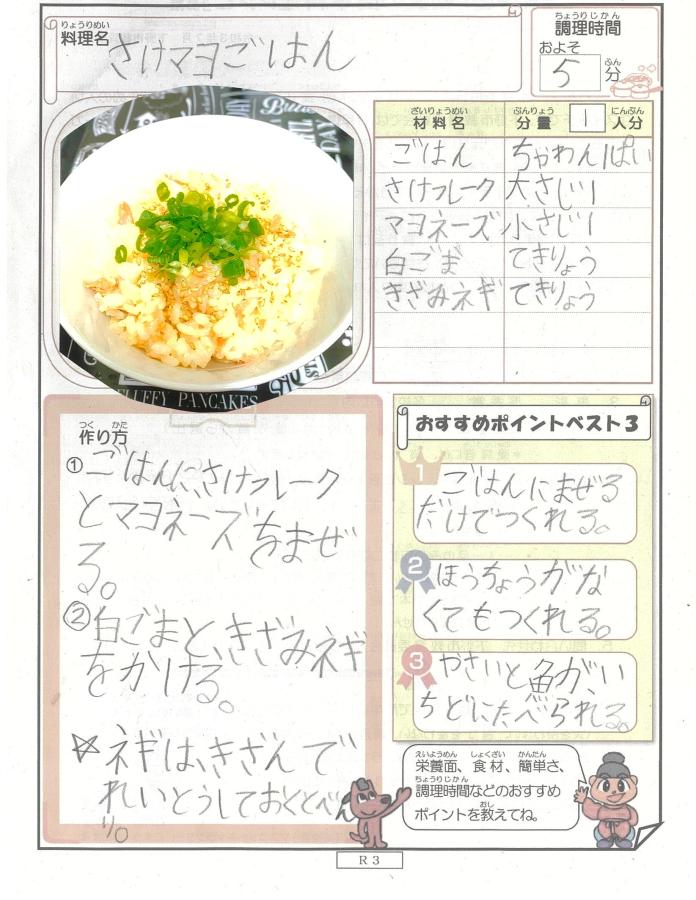 りょうりめい
料理名
さけマヨごはん
ちょうりじかん
調理時間
およそ
5 分
ふん
ざいりょうめい
材料名
ぶんりょう
分量 1 人分
にんぶん
ごはん ちゃわん1ぱい
さけフレーク 大さじ1
マヨネーズ 小さじ1
白ごま てきりょう
きざみネギ てきりょう
FLUFFY PANCAKES
つく かた
作り方
①ごはんに、さけフレーク
とマヨネーズをまぜ
る。
②白ごまと、きざみネギ
をかける。
☆ネギは、きざんで
れいとうしておくとべん
り。
おすすめポイントベスト3
1
ごはんにまぜる
だけでつくれる。
2
ほうちょうがな
くてもつくれる。
3
やさいと魚が、い
ちどにたべられる。
えいようめん しょくざい かんたん
栄養面、食材、簡単さ、
ちょうりじかん
調理時間などのおすすめ
おし
ポイントを教えてね。
R3